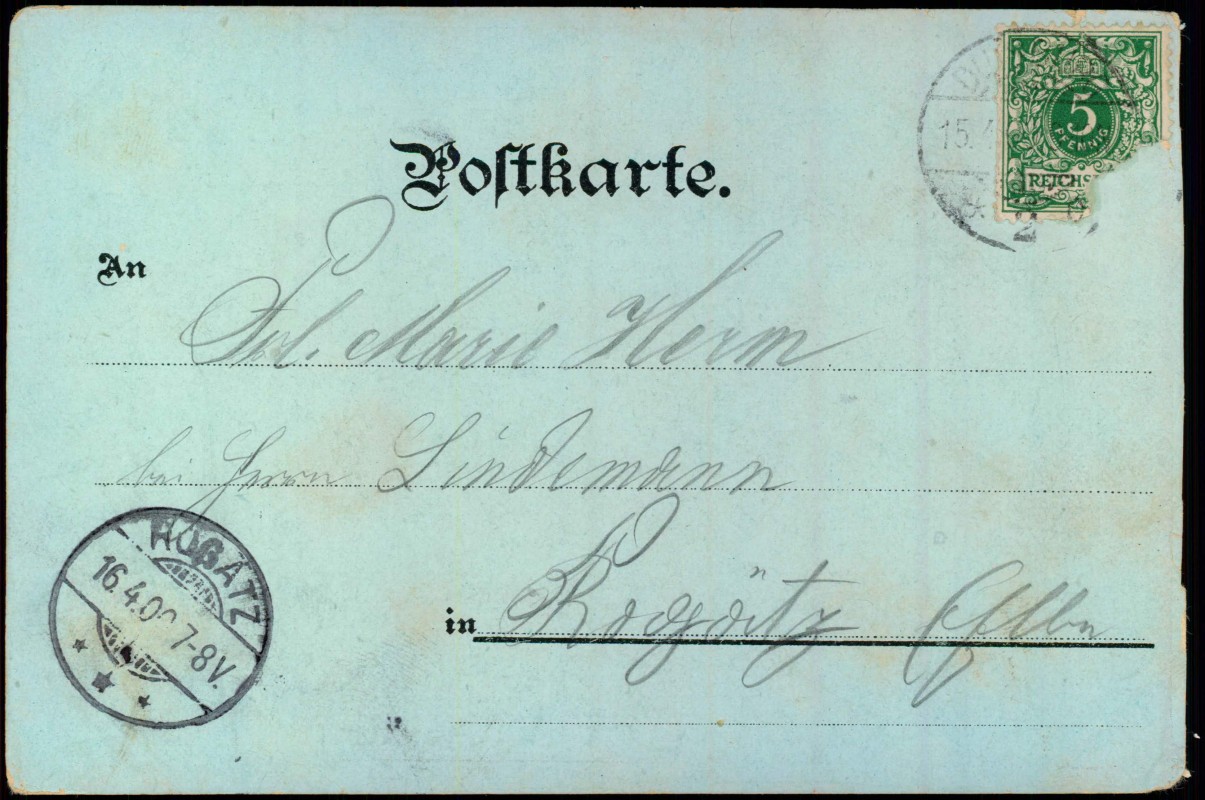 Postkarte.
15.4
2
5
PFENNIG
REICHS
An
Frl. Marie Herm
bei Herrn Lindemann
in Rogätz Elbe
ROGÄTZ
16.4.00 7-8V.